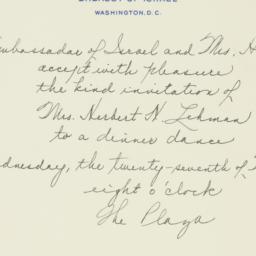 EMBASSY OF ISRAEL
WASHINGTON, D.C.
mbassador of Israel and Mrs. H
accept with pleasure
the kind invitation of
Mrs. Herbert H. Lehman
to a dinner dance
dnesday, the twenty-seventh of
eight o'clock
The Plaza